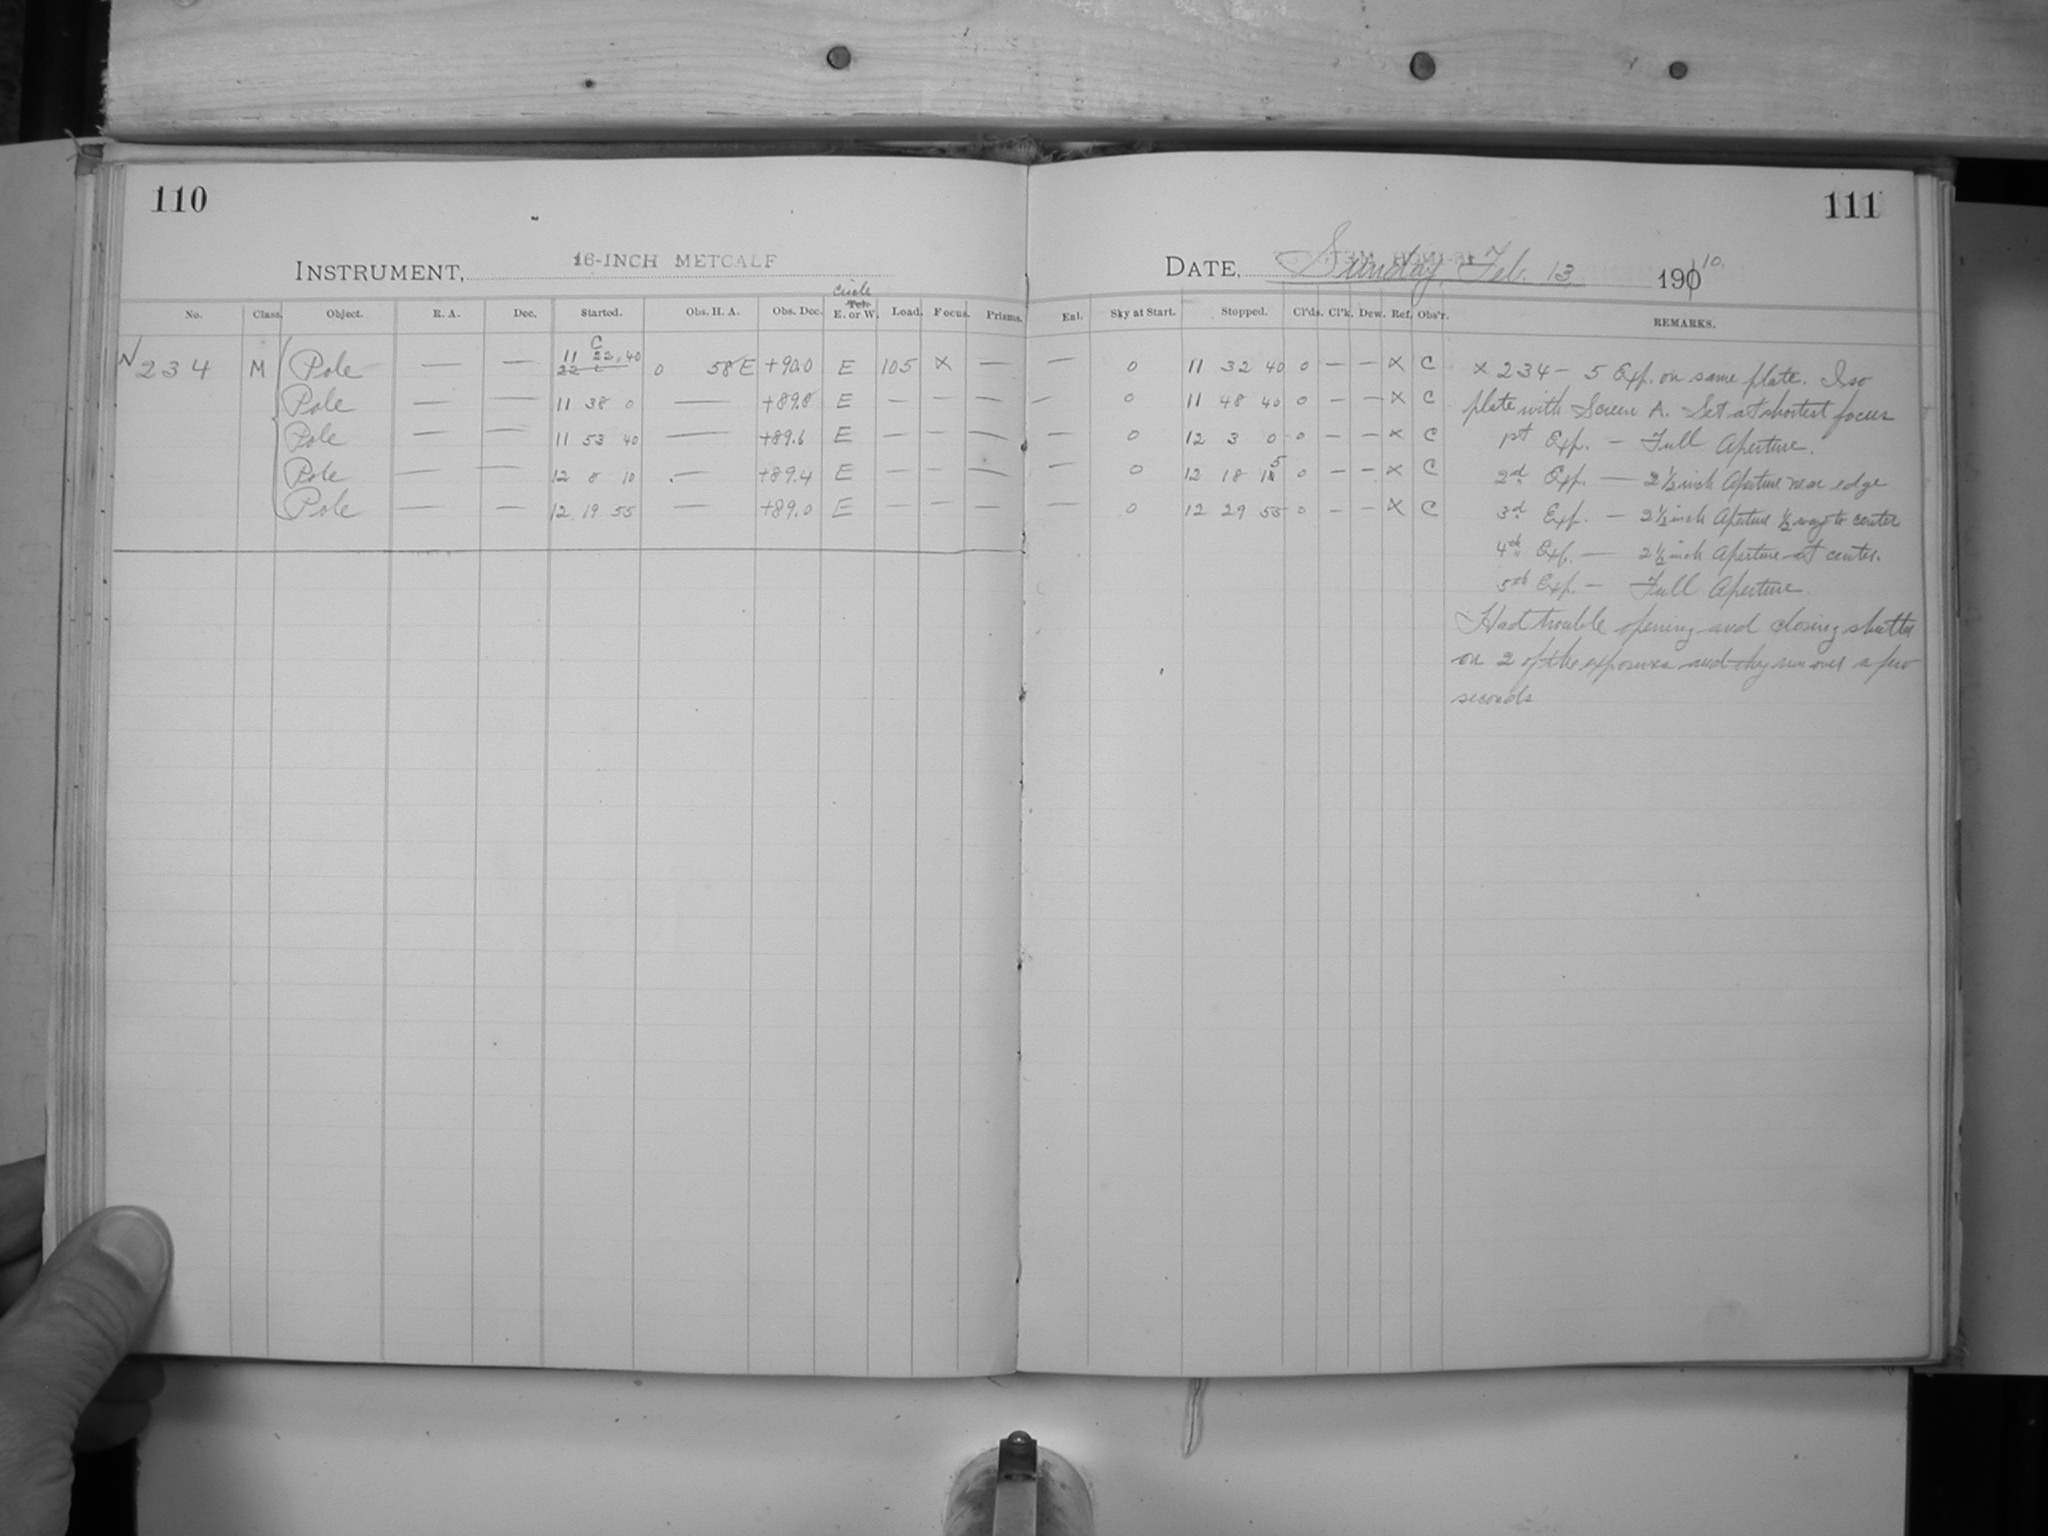 110
111
INSTRUMENT, 16-INCH METCALF
DATE, Sunday, Feb. 13 190 10.
No. Class. Object. R. A. Dec. Started. Obs. H. A. Obs. Dec. Circle Tel. E. or W. Load. Focus. Prisms. Enl. Sky at Start. Stopped. Cl'ds. Cl'k. Dew. Ref. Obs'r. REMARKS.
C
234 M Pole — — 11 22 40 0 58 E +90.0 E 105 X — — 0 11 32 40 0 — — X C
Pole — — 11 38 0 — +89.8 E — — — — 0 11 48 40 0 — — X C
Pole — — 11 53 40 — +89.6 E — — — — 0 12 3 0 0 — — X C
Pole — — 12 8 10 — +89.4 E — — — — 0 12 18 15 0 — — X C
Pole — — 12 19 55 — +89.0 E — — — — 0 12 29 55 0 — — X C
x 234 — 5 Exp. on same plate. Iso
plate with Screen A. Set at shortest focus
1st Exp. — Full Aperture.
2nd Exp. — 2½ inch Aperture near edge
3rd Exp. — 2½ inch Aperture ½ way to center
4th Exp. — 2½ inch Aperture at center.
5th Exp. — Full Aperture.
Had trouble opening and closing shutter
on 2 of the exposures and they run over a few
seconds